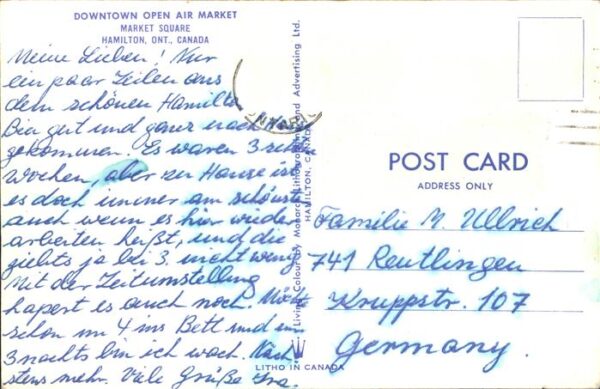 DOWNTOWN OPEN AIR MARKET
MARKET SQUARE
HAMILTON, ONT., CANADA
Meine Lieben! Nur
ein paar Zeilen aus
dem schönen Hamilto
Bin gut und ganz nach
gekommen. Es waren 3 schö
Wochen, aber zu Hause ist
es doch immer am schönst
auch wenn es hier wieder
arbeiten heißt, und die
giebts ja bei 3. nicht wenig
Mit der Zeitumstellung
hapert es auch noch. Möcht
schon um 4 ins Bett und um
3 nachts bin ich wach. Näch
stens mehr. Viele Grüße
Living Colour by Monarch Lithographing and Advertising Ltd.
HAMILTON, CANADA
POST CARD
ADDRESS ONLY
Familie M. Ullrich
741 Reutlingen
Kruppstr. 107
Germany.
LITHO IN CANADA